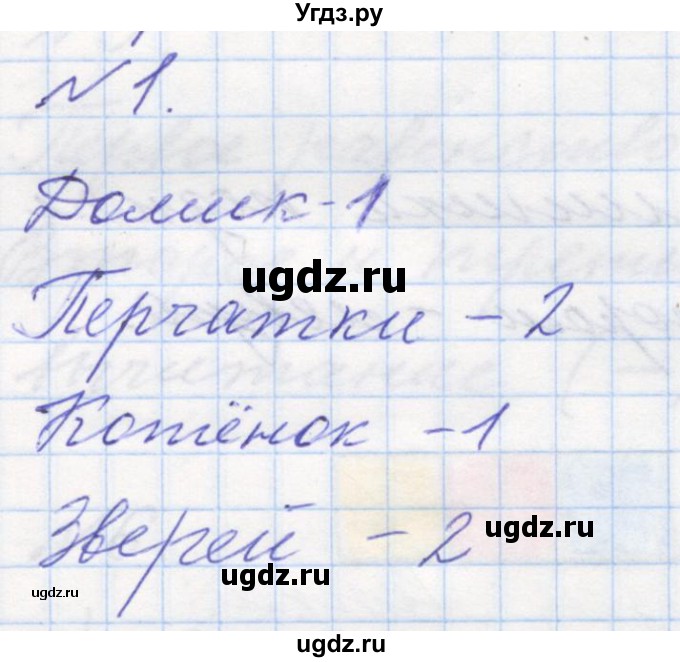 Угдз.ру
№ 1.
Домик - 1
ugdz.ru
Перчатки - 2
Котёнок - 1
ugdz.ru
Зверей - 2
ugdz.ru
ugdz.ru
ugdz.ru